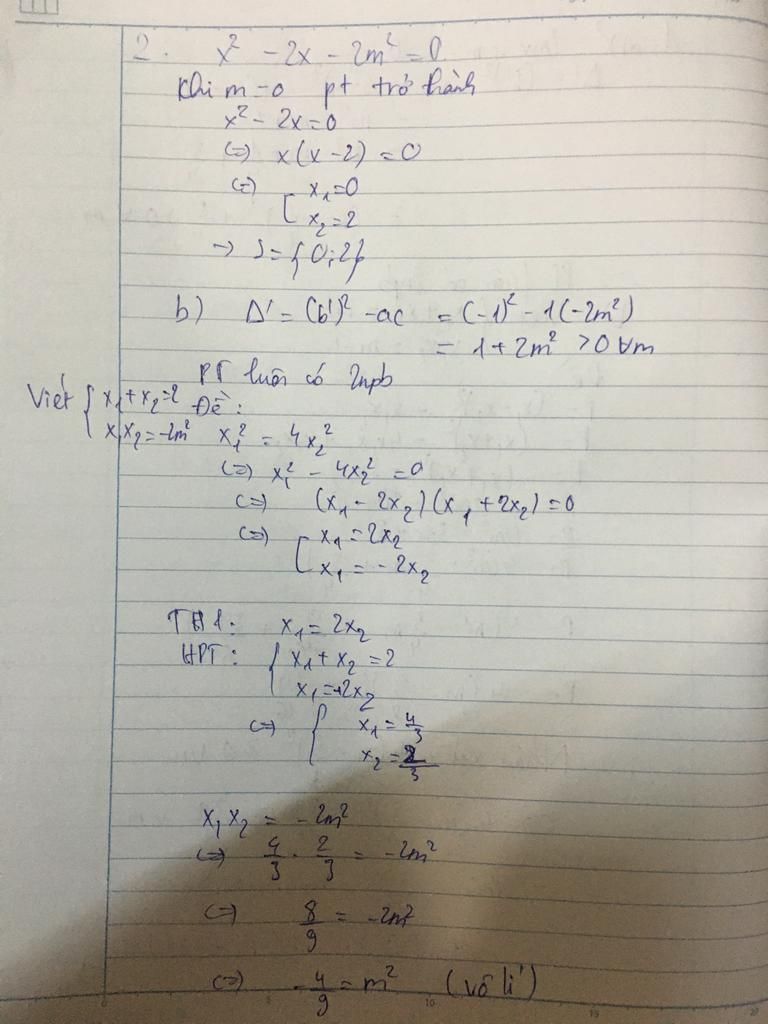 2. x² - 2x - 2m² = 0
Khi m = 0 pt trở thành
x² - 2x = 0
(=) x(x - 2) = 0
(=) [ x₁ = 0
x₂ = 2
→ S = {0; 2}
b) Δ' = (b')² - ac = (-1)² - 1(-2m²)
= 1 + 2m² > 0 ∀m
PT luôn có 2npb
Viét { x₁ + x₂ = 2
x₁x₂ = -2m²
Đề:
x₁² = 4x₂²
(=) x₁² - 4x₂² = 0
(=) (x₁ - 2x₂)(x₁ + 2x₂) = 0
(=) [ x₁ = 2x₂
x₁ = -2x₂
TH1: x₁ = 2x₂
HPT: { x₁ + x₂ = 2
x₁ = 2x₂
(=) { x₁ = 4/3
x₂ = 2/3
x₁x₂ = -2m²
(=) 4/3 . 2/3 = -2m²
(=) 8/9 = -2m²
(=) -4/9 = m² (vô lí)